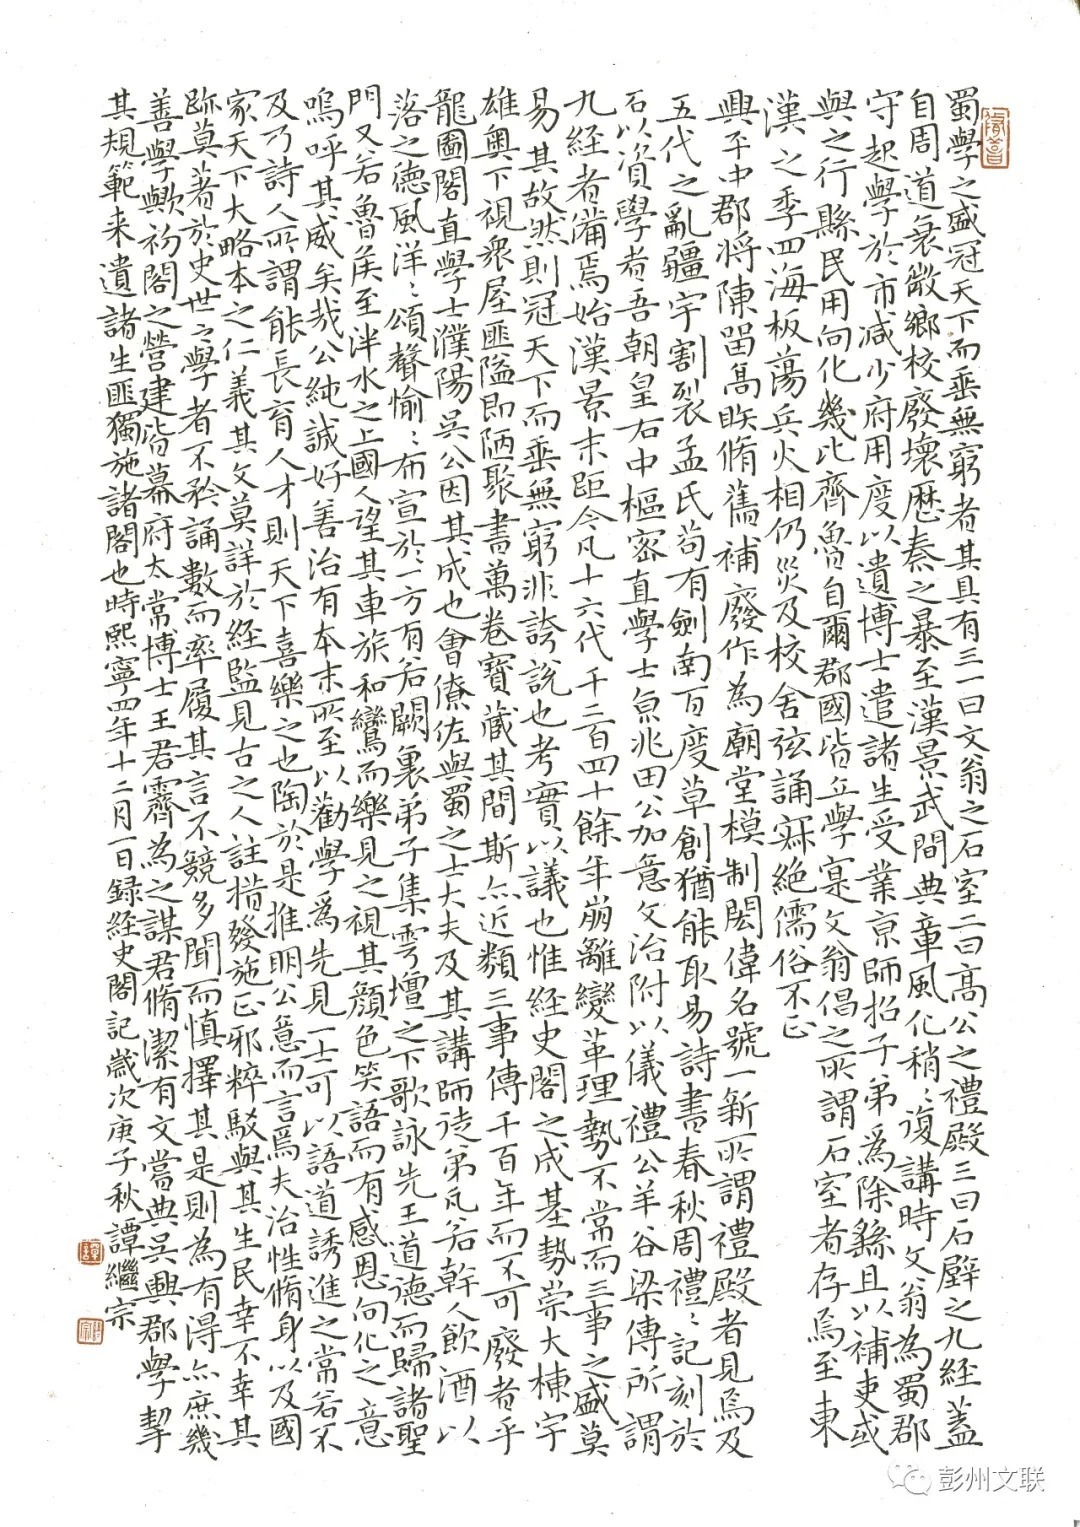 蜀學之盛冠天下而垂無窮者其具有三一曰文翁之石室二曰高公之禮殿三曰石壁之九經蓋
自周道衰微鄉校廢壞歷秦之暴至漢景武間典章風化稍〻復講時文翁為蜀郡
守起學於市減少府用度以遺博士遣諸生受業京師招子弟為除繇且以補吏或
與之行縣民用向化幾比齊魯自爾郡國皆立學寔文翁倡之所謂石室者存焉至東
漢之季四海板蕩兵火相仍災及校舍弦誦寂絕儒俗不正
興平中郡將陳留高䀢脩舊補廢作為廟堂模制閎偉名號一新所謂禮殿者見焉及
五代之亂疆宇割裂孟氏苟有劍南百度草創猶能取易詩書春秋周禮〻記刻於
石以資學者吾朝皇右中樞密直學士京兆田公加意文治附以儀禮公羊谷梁傳所謂
九經者備焉始漢景末距今凡十六代千二百四十餘年崩離變革理勢不常而三事之盛莫
易其故然則冠天下而垂無窮非誇說也考實以議也惟經史閣之成基勢崇大棟宇
雄奧下視衆屋匪隘即陋聚書萬卷寶藏其間斯亦近類三事傳千百年而不可廢者乎
龍圖閣直學士濮陽吳公因其成也會僚佐與蜀之士大夫及其講師徒弟凡若幹人飲酒以
落之德風洋〻頌聲愉〻布宣於一方有若闕裏弟子集雩壇之下歌詠先王道德而歸諸聖
門又若魯侯至泮水之上國人望其車旂和鸞而樂見之視其顏色笑語而有感恩向化之意
嗚呼其威矣哉公純誠好善治有本末所至以勸學為先見一士可以語道誘進之常若不
及乃詩人所謂能長育人才則天下喜樂之也陶於是推明公意而言焉夫治性脩身以及國
家天下大略本之仁義其文莫詳於經監見古之人註措發施正邪粹駁與其生民幸不幸其
跡莫著於史世之學者不矜誦數而率履其言不競多聞而慎擇其是則為有得亦庶幾
善學歟初閣之營建皆幕府太常博士王君霽為之謀君脩潔有文當典吳興郡學挈
其規範来遺諸生匪獨施諸閣也時熙寧四年十二月一日録經史閣記歲次庚子秋譚繼宗
彭州文联